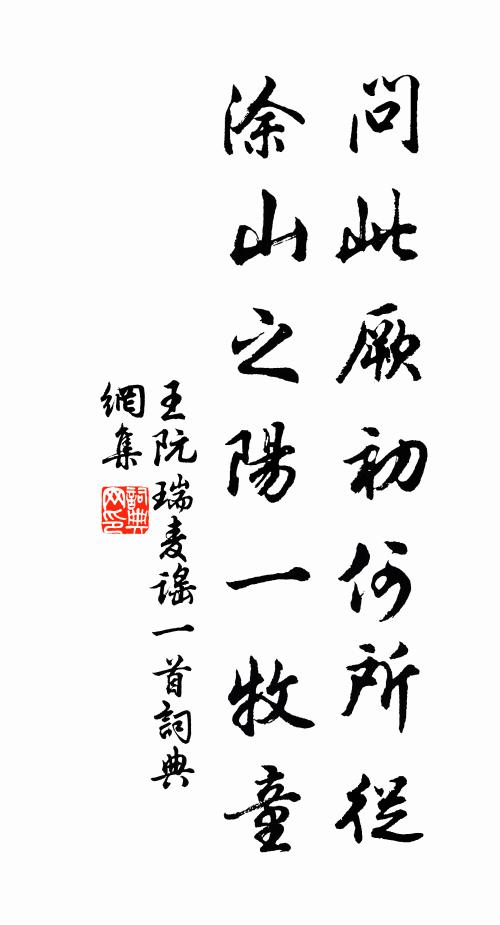 問此厥初何所從
涂山之陽一牧童
王阮瑞麦謠一首詞典
網集
詞典
网印